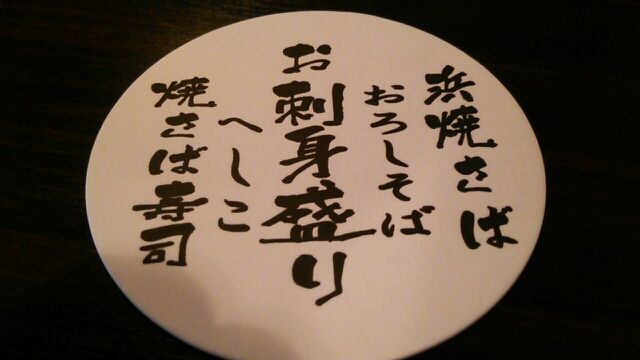 浜焼さば
おろしそば
お刺身盛り
へしこ
焼さば寿司